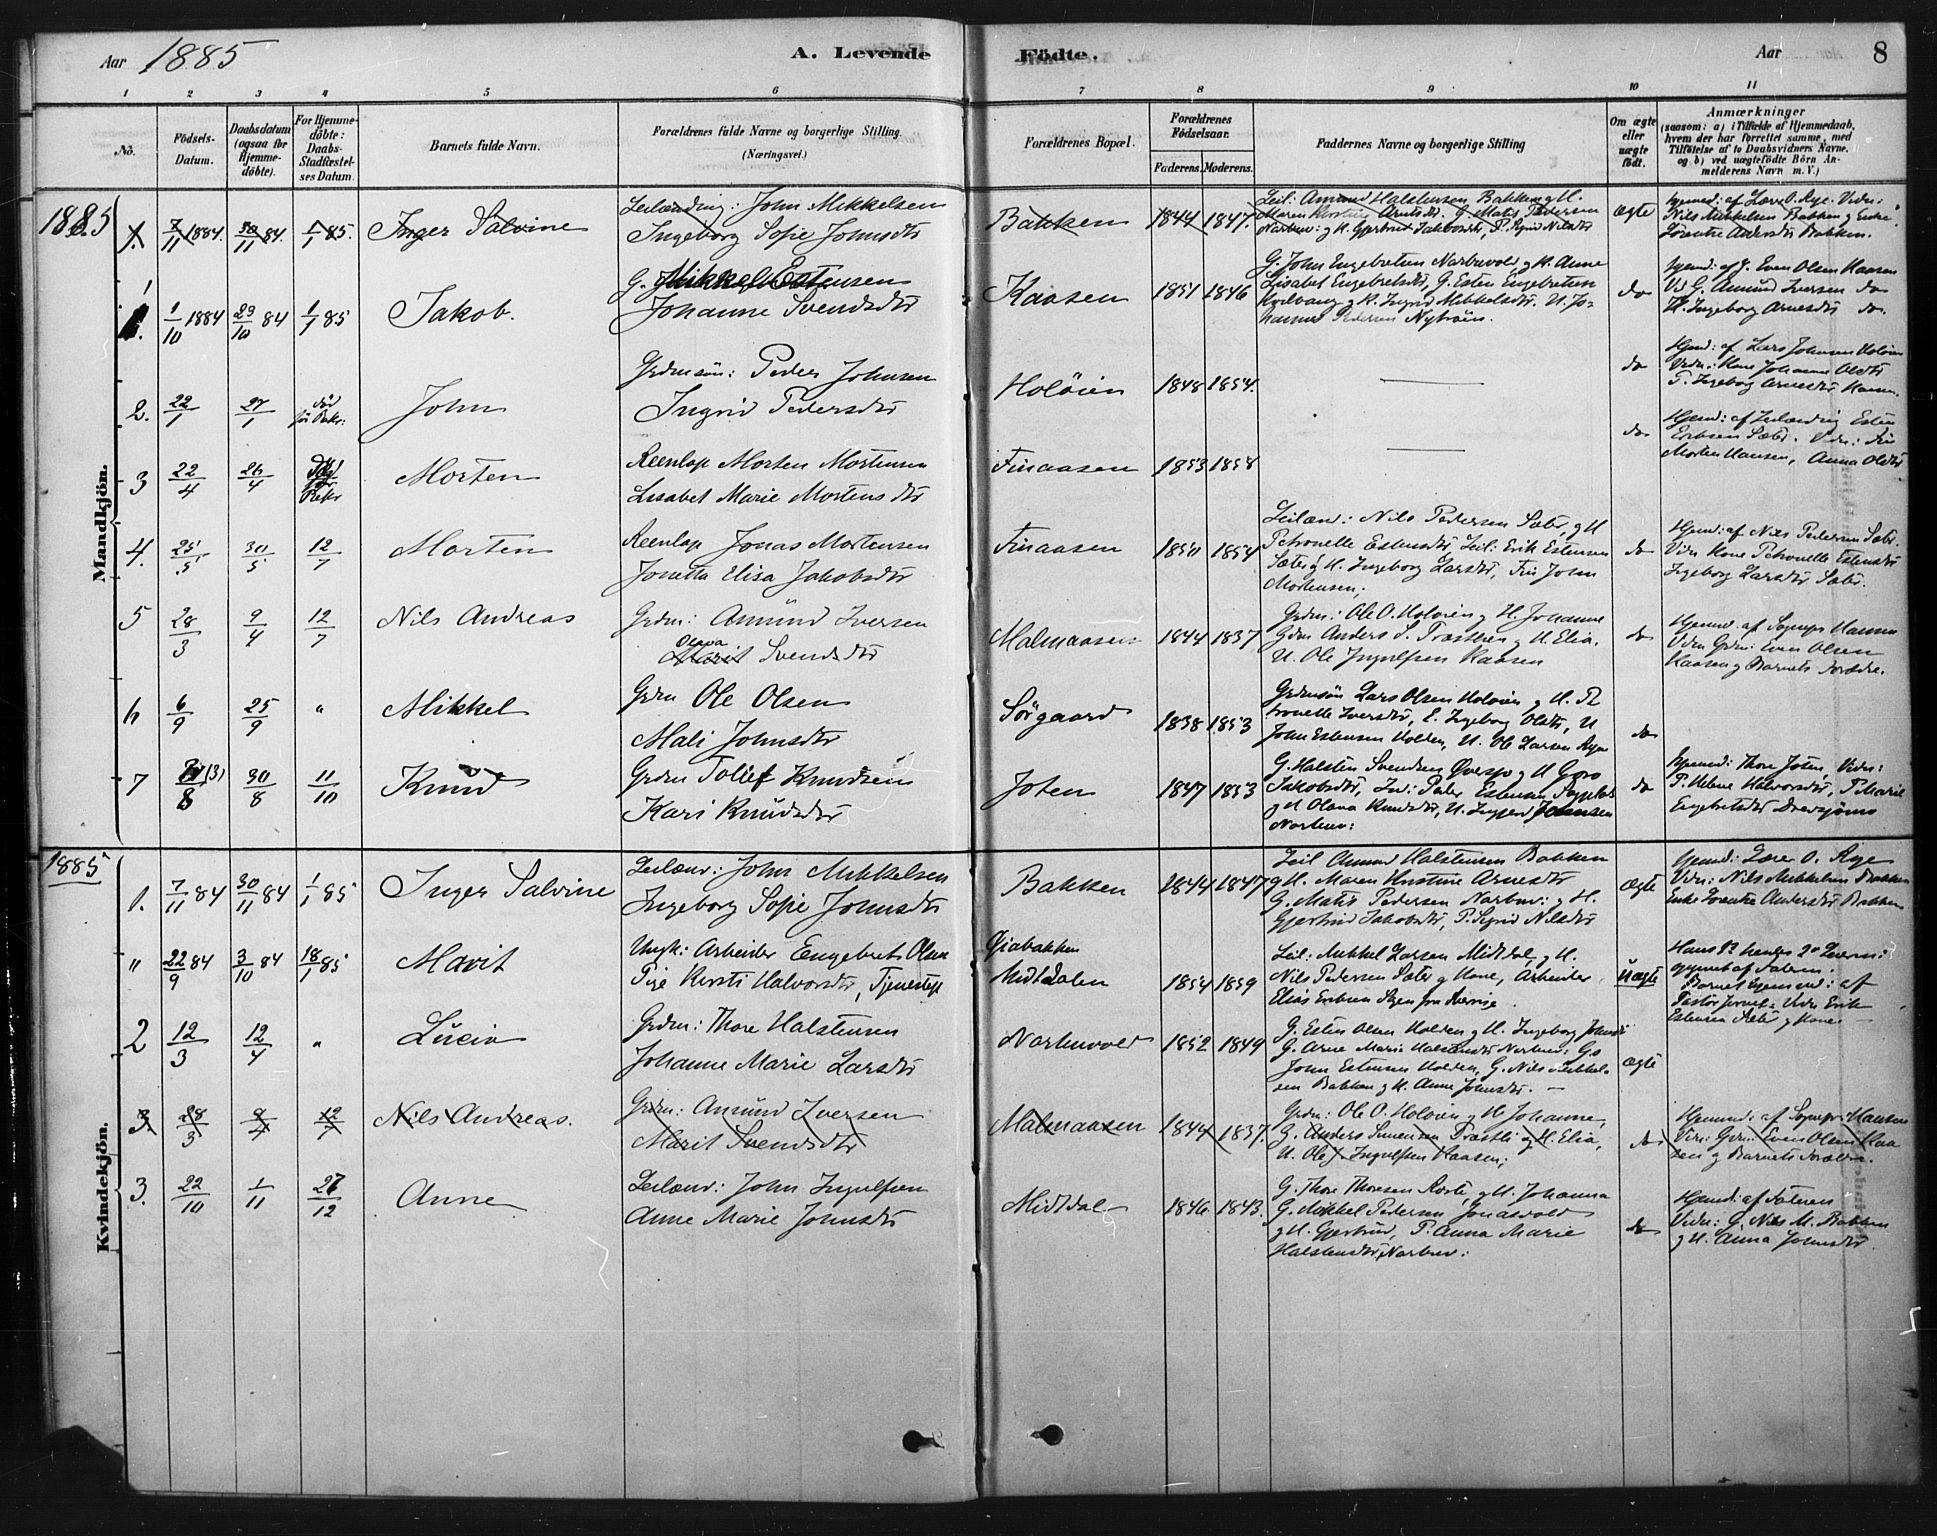 Aar 1885
A. Levende
Födte.
Aar
8
1 2 3 4 5 6 7 8 9 10 11
No.
Födsels-
Datum.
Daabsdatum
(ogsaa for
Hjemme-
döbte).
For Hjemme-
döbte:
Daabs-
Stadfæstel-
ses Datum.
Barnets fulde Navn.
Forældrenes fulde Navne og borgerlige Stilling.
(Næringsvei.)
Forældrenes Bopæl.
Forældrenes
Födselsaar.
Faderens. Moderens.
Faddernes Navne og borgerlige Stilling
Om ægte
eller
uægte
födt.
Anmærkninger
(saasom: a) i Tilfælde af Hjemmedaab,
hvem der har forrettet samme, med
Tilföielse af to Daabsvidners Navne.
og b) ved uægtefödte Börn An-
melderens Navn m. V.)
Mandkjön.
1885
1. 7/11 1884. 30/11 84. 1/1 85. Inger Salvine
Leilænding: John Mikkelsen
Ingeborg Sofie Johnsdtr
Bakken 1844 1847.
Leil: Amund Halstensen Bakken og H.
Maren Kirstine Arnesdtr. G. Mats Pedersen
Narbuv: og H. Gjertrud Jakobsdtr, P. Sigrid Nilsdtr
ægte
Hjemmed: af Lærer O. Rye. Vidn:
Nils Mikkelsen Bakken og Enke
Lorentse Andersdtr Bakken.
1. 1/10 1884 29/10 84 1/1 85 Jakob.
G. Mikkel Estensen
Johanne Svendsdtr
Kaasen 1851 1846
G. John Engebretsen Narbuvold og K. Anne
Lisabet Engebretsdtr, G. Esten Engebretsen
Kvilvang og K. Ingrid Mikkelsdtr. U. Jo-
hannes Pedersen Nytrøen.
do
Hjemd: af G. Even Olsen Kaasen
Vid G. Amund Iversen do
K. Ingeborg Arnesdtr do.
2. 22/1 27/1 død før Bekr: John
Grdmsøn: Peder Johnsen
Ingrid Pedersdtr
Holøien 1848 1854.
do
Hjemd: af Lars Johnsen Holøien
Vidn: Kone Johanne Olsdtr
P. Ingeborg Arnesdtr Kaasen.
3 22/4 26/4 Død før Bekr Morten
Reenlap Morten Mortensen
Lisabet Marie Mortensdtr
Finaasen 1853 1858
do
Hjemd: af Leilænding Esten
Eriksen Sæter. Vidn: Fin
Morten Hansen, Anna Olsdtr
4. 25/5 30/5 12/7 Morten
Reenlap Jonas Mortensen
Jonetta Elisa Jakobsdtr
Finaasen 1850 1854
Leilænd: Nils Pedersen Sæter, og H
Petronelle Estensdtr, Leil: Erik Estensen
Sæter og H. Ingeborg Larsdtr, Fin John
Mortensen;
do
Hjemd: af Nils Pedersen Sæter.
Vidn Kone Petronelle Estensdtr
Ingeborg Larsdtr Sæter.
5 28/3 9/4 12/7 Nils Andreas
Grdm: Amund Iversen
Olava
Marit Svendsdtr
Malmaasen 1844 1837
Grdm: Ole O. Holøien og H. Johanne
Grdm Anders S. Træthlien og H. Elia.
U. Ole Ingulfsen Kaasen
do
Hjemmd: af Sognepr Hansen
Vidn Grdm: Even Olsen
Kaasen og Barnets Forældre.
6 6/9 25/9 " Mikkel
Grdm Ole Olsen
Mali Johnsdtr
Sørgaard 1838 1853
Grdmsøn Lars Olsen Holøien og H. Pe
tronelle Iversdtr, E. Ingeborg Olsdtr, U
John Estensen Holden, U. Ole Larsen Ryen
do
7 (3)/8 30/8 11/10 Knud
Grdm Tollef Knudsen
Kari Knudsdtr
Joten 1847 1853
G. Halsten Svendsen Øversjø og H Goro
Jakobsdtr, Ind: Peder Estensen
og H Olava Knudsdtr, U. Ingjerd Johnsen
Narbuv:
do
Hjemmd: Thore Joten, Vidn:
P. Helene Halvorsdtr, P. Marie
Engebretsdtr Drevsjømo
Kvindekjön.
1885
1. 7/11 84 30/11 84 1/1 85 Inger Salvine
Leilænd: John Mikkelsen
Ingeborg Sofie Johnsdtr
Bakken 1844 1847
Leil Amund Halstensen Bakken
og H. Maren Kirstine Arnesdtr
G. Mats Pedersen Narbuv: og H.
Gjertrud Jakobsdtr, P. Sigrid Nilsdtr
Ægte
Hjemd: Lærer O. Rye
Vidn: Nils Mikkelsen Bakken
Enke Lorentse Andersdtr Bakken
" 22/9 84 3/10 84 18/1 85 Marit
Ungk: Arbeider Engebret Olsen
Pige Kirsti Halvorsdtr, Tjenestepi
Øiabakken
Midtdalen 1854 1859
Leil: Mikkel Larsen Midtdal og H.
Nils Pedersen Sæter og Kone, Arbeider
Elias Eriksen
Uægte
Hans 1ste hendes 2det Leierm:
opgivet af Faderen.
Barnet hjemmed: af
Vidn Erik
Estensen Sæter og Kone.
2 12/3 12/4 " Lucia
Grdm: Thore Halstensen
Johanne Marie Larsdtr
Narbuvold 1852 1849
G. Esten Olsen Holden og H. Ingeborg Johnsdtr
G. Arne Halstensdtr Narbuv: Gs
John Estensen Holden, G. Nils Mikkel-
sen Bakken og H. Anne Johnsdtr.
ægte
3. 28/3 9/4 12/7 Nils Andreas.
Grdm: Amund Iversen
Marit Svendsdtr
Malmaasen 1844 1837.
Grdm: Ole O. Holøien og H Johanne,
G. Anders Simensen Træthli og H. Elia,
U. Ole Ingulfsen Kaasen;
do
Hjemmd: af Sognepr: Hansen
Vidn: Grdm: Even Olsen Kaa
sen og Barnets Forældre.
3. 22/10 1/11 27/12 Anne
Leilænd: John Ingulfsen
Anne Marie Johnsdtr
Midtdal 1846 1843.
G. Thore Thoresen Roste, og H. Johanna
G. Mikkel Pedersen Jonasvold
og H. Gjertrud, P. Anna Marie
Halstensdtr, Narbuv:
do
Hjemd: af Faderen
Vidn: G. Nils M. Bakken
og H. Anna Johnsdtr.